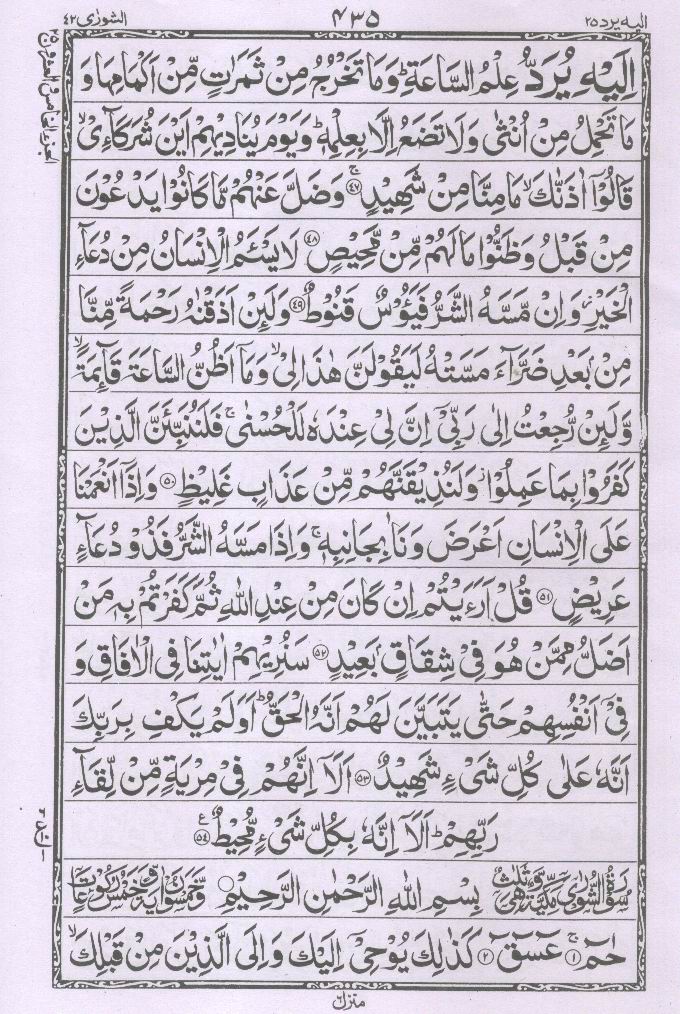 اليه يرد ٢٥
٤٣٥
الشورٰى ٤٢
اِلَيْهِ يُرَدُّ عِلْمُ السَّاعَةِ ؕ وَمَا تَخْرُجُ مِنْ ثَمَرٰتٍ مِّنْ اَكْمَامِهَا وَ
مَا تَحْمِلُ مِنْ اُنْثٰى وَلَا تَضَعُ اِلَّا بِعِلْمِهٖ ؕ وَيَوْمَ يُنَادِيْهِمْ اَيْنَ شُرَكَآءِىْ ۙ
قَالُوْۤا اٰذَنّٰكَ ۙ مَا مِنَّا مِنْ شَهِيْدٍ ۚ ﴿٤٧﴾ وَضَلَّ عَنْهُمْ مَّا كَانُوْا يَدْعُوْنَ
مِنْ قَبْلُ وَظَنُّوْا مَا لَهُمْ مِّنْ مَّحِيْصٍ ﴿٤٨﴾ لَا يَسْـَٔمُ الْاِنْسَانُ مِنْ دُعَآءِ
الْخَيْرِ ۫ وَاِنْ مَّسَّهُ الشَّرُّ فَيَـُٔوْسٌ قَنُوْطٌ ﴿٤٩﴾ وَلَئِنْ اَذَقْنٰهُ رَحْمَةً مِّنَّا
مِنْۢ بَعْدِ ضَرَّآءَ مَسَّتْهُ لَيَقُوْلَنَّ هٰذَا لِىْ ۙ وَمَاۤ اَظُنُّ السَّاعَةَ قَآئِمَةً ۙ
وَّلَئِنْ رُّجِعْتُ اِلٰى رَبِّىْۤ اِنَّ لِىْ عِنْدَهٗ لَلْحُسْنٰى ۚ فَلَنُنَبِّئَنَّ الَّذِيْنَ
كَفَرُوْا بِمَا عَمِلُوْا ۫ وَلَنُذِيْقَنَّهُمْ مِّنْ عَذَابٍ غَلِيْظٍ ﴿٥٠﴾ وَاِذَاۤ اَنْعَمْنَا
عَلَى الْاِنْسَانِ اَعْرَضَ وَنَاٰ بِجَانِبِهٖ ۚ وَاِذَا مَسَّهُ الشَّرُّ فَذُوْ دُعَآءٍ
عَرِيْضٍ ﴿٥١﴾ قُلْ اَرَءَيْتُمْ اِنْ كَانَ مِنْ عِنْدِ اللّٰهِ ثُمَّ كَفَرْتُمْ بِهٖ مَنْ
اَضَلُّ مِمَّنْ هُوَ فِىْ شِقَاقٍۢ بَعِيْدٍ ﴿٥٢﴾ سَنُرِيْهِمْ اٰيٰتِنَا فِى الْاٰفَاقِ وَ
فِىْۤ اَنْفُسِهِمْ حَتّٰى يَتَبَيَّنَ لَهُمْ اَنَّهُ الْحَقُّ ؕ اَوَلَمْ يَكْفِ بِرَبِّكَ
اَنَّهٗ عَلٰى كُلِّ شَىْءٍ شَهِيْدٌ ﴿٥٣﴾ اَلَاۤ اِنَّهُمْ فِىْ مِرْيَةٍ مِّنْ لِّقَآءِ
رَبِّهِمْ ؕ اَلَاۤ اِنَّهٗ بِكُلِّ شَىْءٍ مُّحِيْطٌ ﴿٥٤﴾ ع
سورة الشورى مكية وهى ثلث بِسْمِ اللّٰهِ الرَّحْمٰنِ الرَّحِيْمِ وخمسون اية وخمس ركوعات
حٰمٓ ۚ ﴿١﴾ عٓسٓقٓ ﴿٢﴾ كَذٰلِكَ يُوْحِىْۤ اِلَيْكَ وَاِلَى الَّذِيْنَ مِنْ قَبْلِكَ ۙ
منزل ٦
الجزء الخامس والعشرون ٢٥